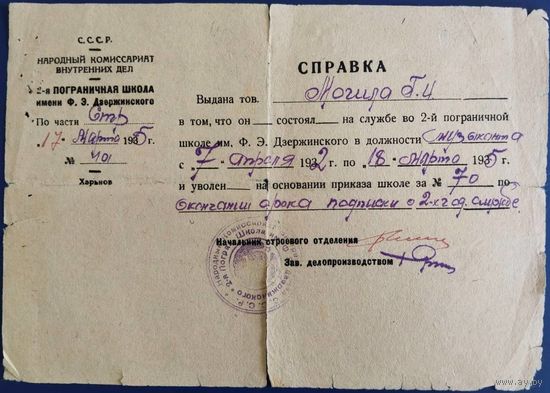 С.С.С.Р.
НАРОДНЫЙ КОМИССАРИАТ
ВНУТРЕННИХ ДЕЛ
2-я ПОГРАНИЧНАЯ ШКОЛА
имени Ф. Э. Дзержинского
По части Стр
17 Марта 1935 г.
№ 401
Харьков
СПРАВКА
Выдана тов. Могила Г. И
в том, что он состоял на службе во 2-й пограничной
школе им. Ф. Э. Дзержинского в должности музыканта
с 7 апреля 1932 г по 18 марта 1935 г
и уволен на основании приказа школе за № 70 по
окончании срока подписки о 2-х год. службе
Начальник строевого отделения
Зав. делопроизводством
www.ay.by